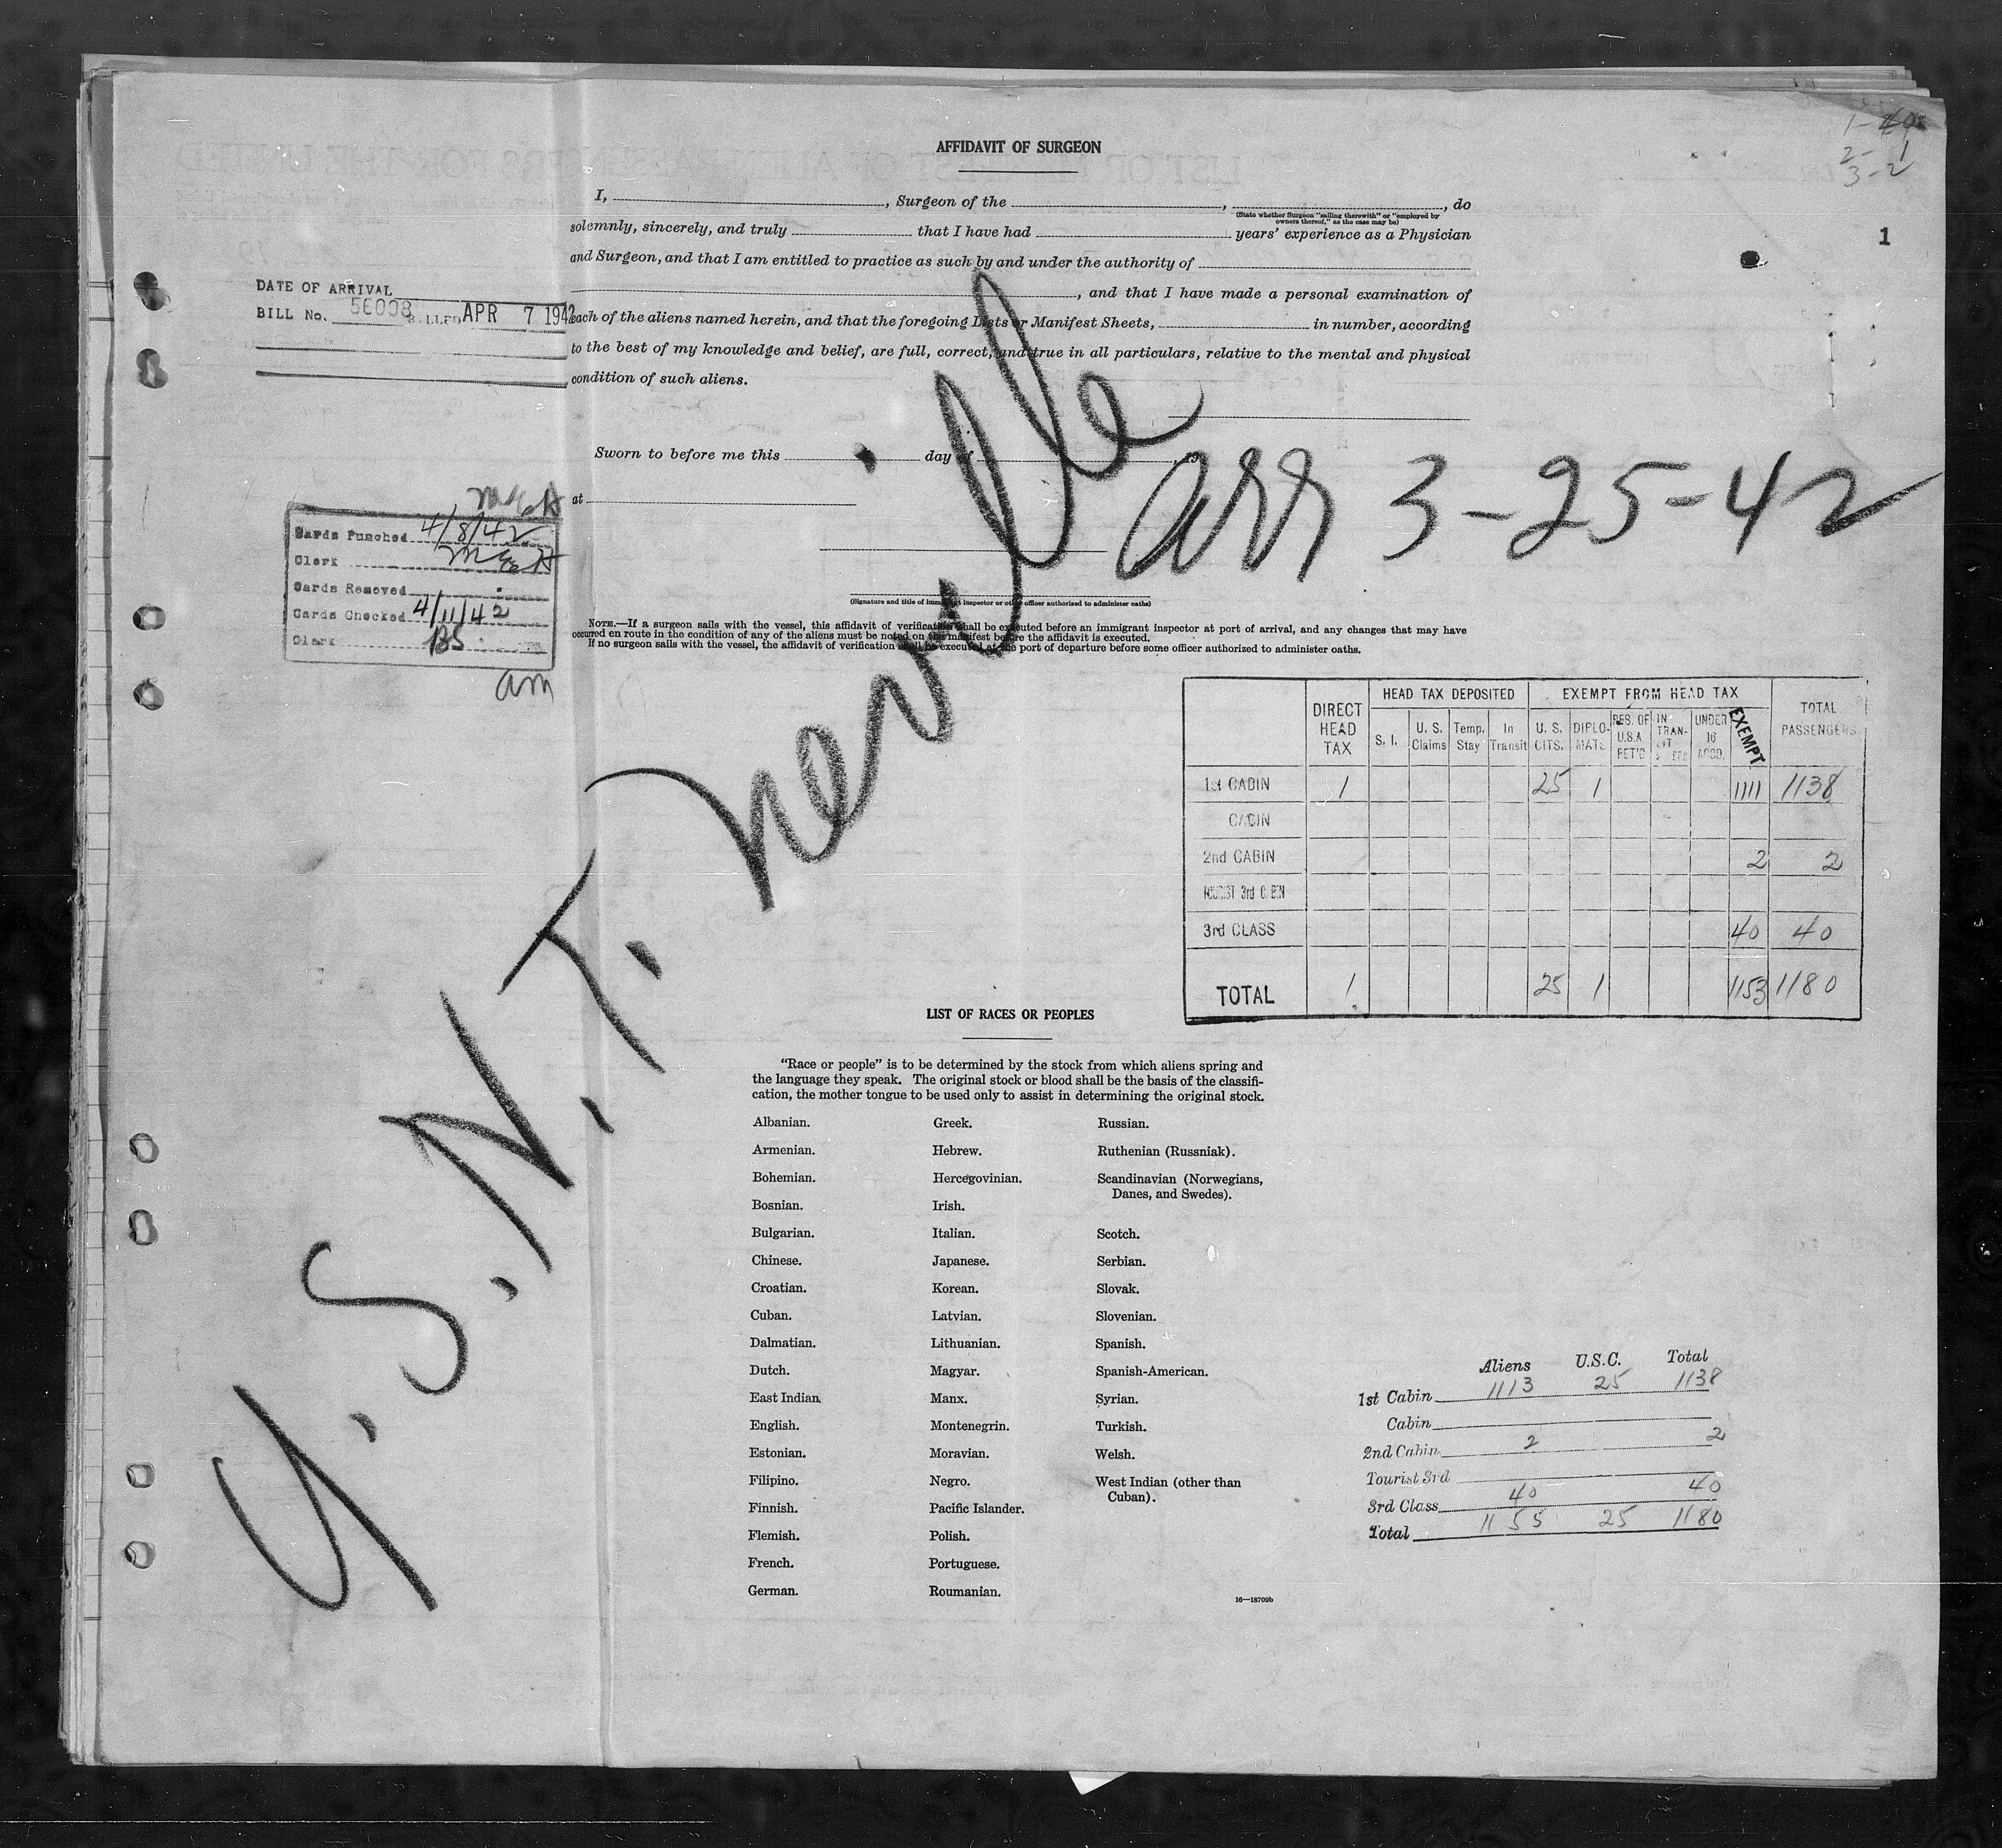 AFFIDAVIT OF SURGEON
1
2-1
3-2
1
I, , Surgeon of the , , do
(State whether Surgeon "sailing therewith" or "employed by
owners thereof," as the case may be)
solemnly, sincerely, and truly that I have had years' experience as a Physician
and Surgeon, and that I am entitled to practice as such by and under the authority of
, and that I have made a personal examination of
each of the aliens named herein, and that the foregoing Lists or Manifest Sheets, in number, according
to the best of my knowledge and belief, are full, correct, and true in all particulars, relative to the mental and physical
condition of such aliens.
DATE OF ARRIVAL
BILL No. 56008 BILLED APR 7 1942
Sworn to before me this day of , 19
at
(Signature and title of immigrant inspector or other officer authorized to administer oaths)
NOTE.—If a surgeon sails with the vessel, this affidavit of verification shall be executed before an immigrant inspector at port of arrival, and any changes that may have
occurred en route in the condition of any of the aliens must be noted on the manifest before the affidavit is executed.
If no surgeon sails with the vessel, the affidavit of verification shall be executed at the port of departure before some officer authorized to administer oaths.
Cards Punched 4/8/42
Clerk
Cards Removed
Cards Checked 4/11/42
Clerk BS
am
U.S.N.T. Neville
arr 3-25-42
DIRECT HEAD TAX
HEAD TAX DEPOSITED
EXEMPT FROM HEAD TAX
TOTAL PASSENGERS
S. I. U. S. Claims Temp. Stay In Transit U. S. CITS. DIPLOMATS RES. OF U.S.A. RET'G IN TRANSIT UNDER 16 ACCD. EXEMPT
1st CABIN 1 25 1 1111 1138
CABIN
2nd CABIN 2 2
TOURIST 3rd CABIN
3rd CLASS 40 40
TOTAL 1 25 1 1153 1180
LIST OF RACES OR PEOPLES
"Race or people" is to be determined by the stock from which aliens spring and
the language they speak. The original stock or blood shall be the basis of the classifi-
cation, the mother tongue to be used only to assist in determining the original stock.
Albanian.
Armenian.
Bohemian.
Bosnian.
Bulgarian.
Chinese.
Croatian.
Cuban.
Dalmatian.
Dutch.
East Indian.
English.
Estonian.
Filipino.
Finnish.
Flemish.
French.
German.
Greek.
Hebrew.
Hercegovinian.
Irish.
Italian.
Japanese.
Korean.
Latvian.
Lithuanian.
Magyar.
Manx.
Montenegrin.
Moravian.
Negro.
Pacific Islander.
Polish.
Portuguese.
Roumanian.
Russian.
Ruthenian (Russniak).
Scandinavian (Norwegians,
Danes, and Swedes).
Scotch.
Serbian.
Slovak.
Slovenian.
Spanish.
Spanish-American.
Syrian.
Turkish.
Welsh.
West Indian (other than
Cuban).
16—18709b
Aliens U.S.C. Total
1st Cabin 1113 25 1138
Cabin
2nd Cabin 2 2
Tourist 3rd
3rd Class 40 40
Total 1155 25 1180